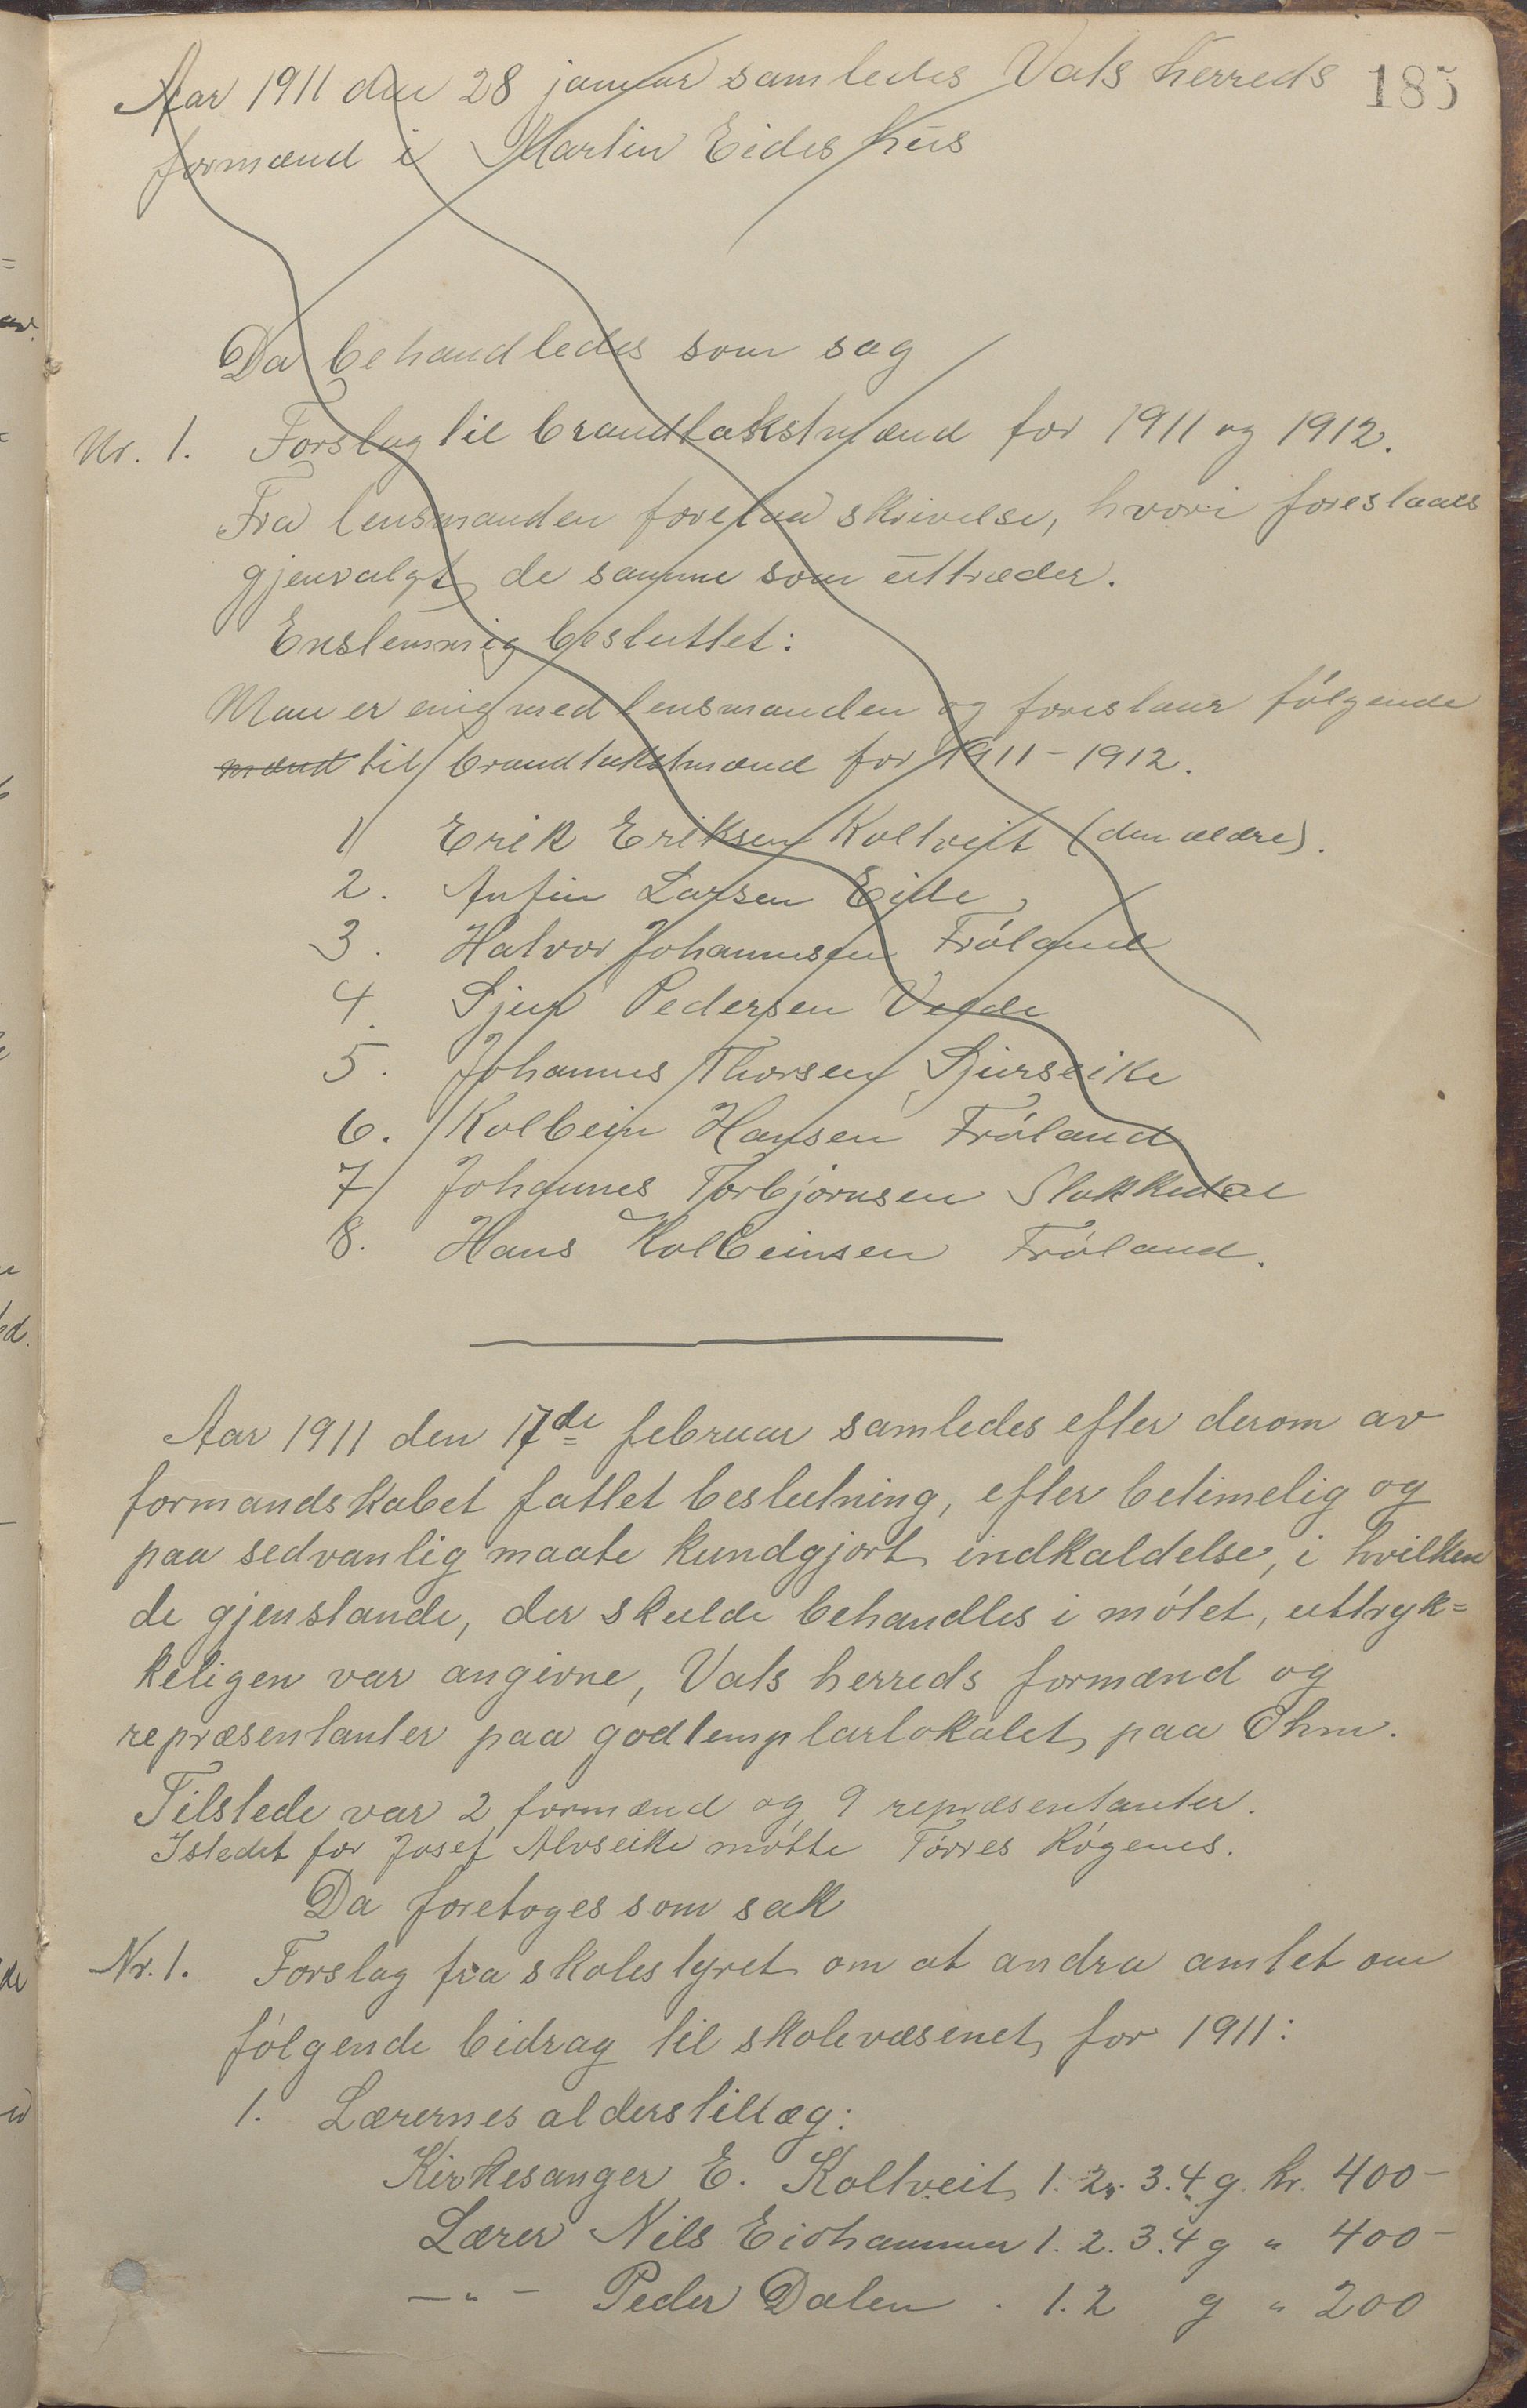 Aar 1911 den 28 januar samledes Vats herreds 185
formænd i Martin Eides hus
Da behandledes som sag
Nr. 1. Forslag til brandtakstmænd for 1911 og 1912.
Fra lensmanden forelaa skrivelse, hvori foreslaaes
gjenvalgt de samme som uttræder.
Enstemmig besluttet:
Man er enig med lensmanden og foreslaar følgende
mænd til brandtakstmænd for 1911-1912.
1 Erik Eriksen Koltveit (den ældre).
2. Anfin Larsen Eide,
3. Halvor Johannesen Frøland
4. Sjur Pedersen Vaade
5. Johannes Thorsen Sjurseike
6. Kolbein Hansen Frøland
7 Johannes Torbjørnsen Stokkedal
8. Hans Kolbeinsen Frøland.
Aar 1911 den 17de februar samledes efter derom av
formandskabet fattet beslutning, efter betimelig og
paa sedvanlig maate kundgjort indkaldelse, i hvilken
de gjenstande, der skulde behandles i møtet, uttryk=
keligen var angivne, Vats herreds formænd og
repræsentanter paa godtemplarlokalet paa Øhm.
Tilstede var 2 formænd og 9 repræsentanter.
Istedet for Josef Alvseike møtte Tørres Røgenes.
Da foretoges som sak
Nr. 1. Forslag fra skolestyret om at andra amtet om
følgende bidrag til skolevæsenet for 1911:
1. Lærernes alderstillæg:
Kirkesanger E. Koltveit 1. 2. 3. 4 g. kr. 400-
Lærer Nils Eidhammer 1. 2. 3. 4 g " 400-
-"- Peder Dalen . 1. 2 g " 200